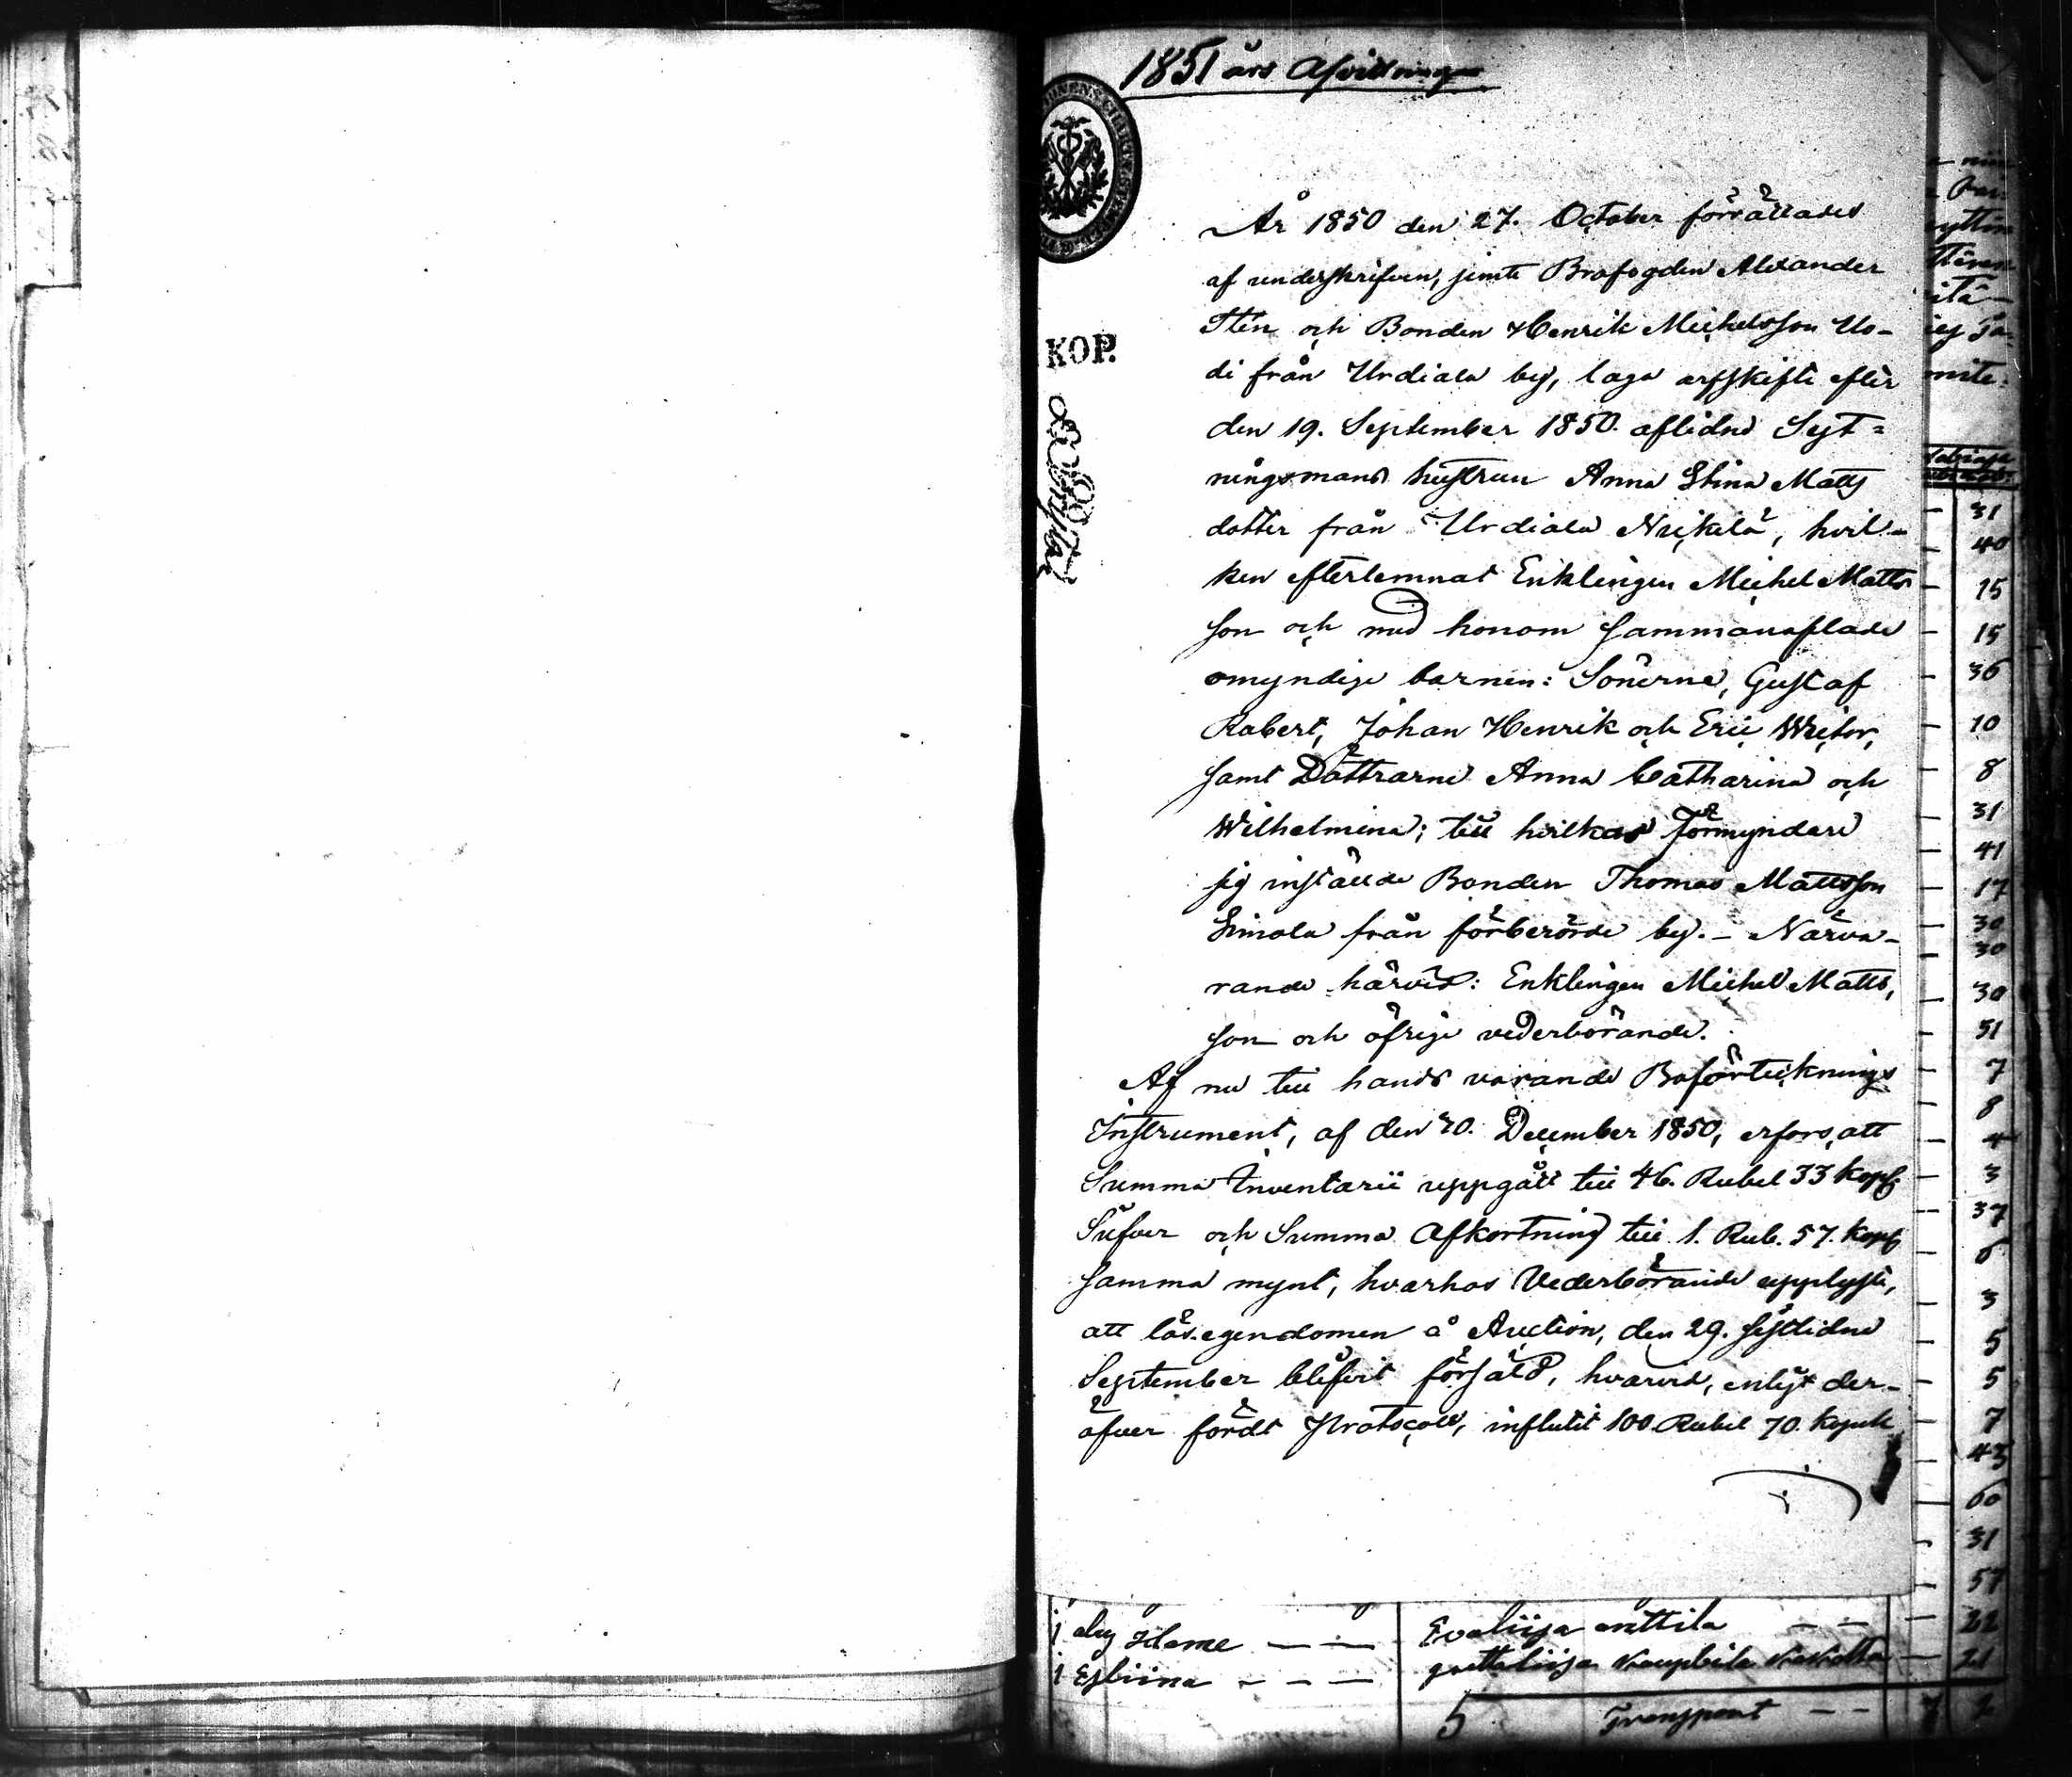 1851 års Afvittring
KOP.
År 1850 den 27. October förrättades
af underskrifven, jemte Brofogden Alexander
Sten och Bonden Henrik Michelsson Uo-
di från Urdiala by, laga arfskifte efter
den 19. September 1850. aflidne Syt=
ningsmans hustrun Anna Stina Matts
dotter från Urdiala Nuikilä, hvil-
ken efterlemnat Enklingen Michel Matts
son och med honom sammanaflade
omyndige barnen: Sönerne, Gustaf
Robert, Johan Henrik och Eric Wictor,
samt Döttrarne Anna Catharina och
Wilhelmina; till hvilkas Förmyndare
sig inställde Bonden Thomas Mattsson
Simola från förberörde by. – Närva-
rande härvid: Enklingen Michel Matts,
son och öfrige vederbörande.
Af nu till hands varande Boförtecknings
Instrument, af den 20. December 1850, erfors, att
Summa Inventarii uppgått till 46. Rubel 33 kop.
Silfver och Summa Afkortning till 1. Rub. 57. kop.
samma mynt, hvarhos Vederbörande upplyste,
att lös.egendomen å Auction, den 29. sistlidne
September blifvit försåld, hvarvid, enligt der-
öfver fördt Protocoll, influtit 100 Rubel 70. kopek
31
40
15
15
36
10
8
31
41
17
30
30
30
51
7
8
4
3
37
6
3
5
5
7
43
60
31
57
1 Hame — — Evaliisa anttila — — 22
1 — — — 21
5 Transport — —